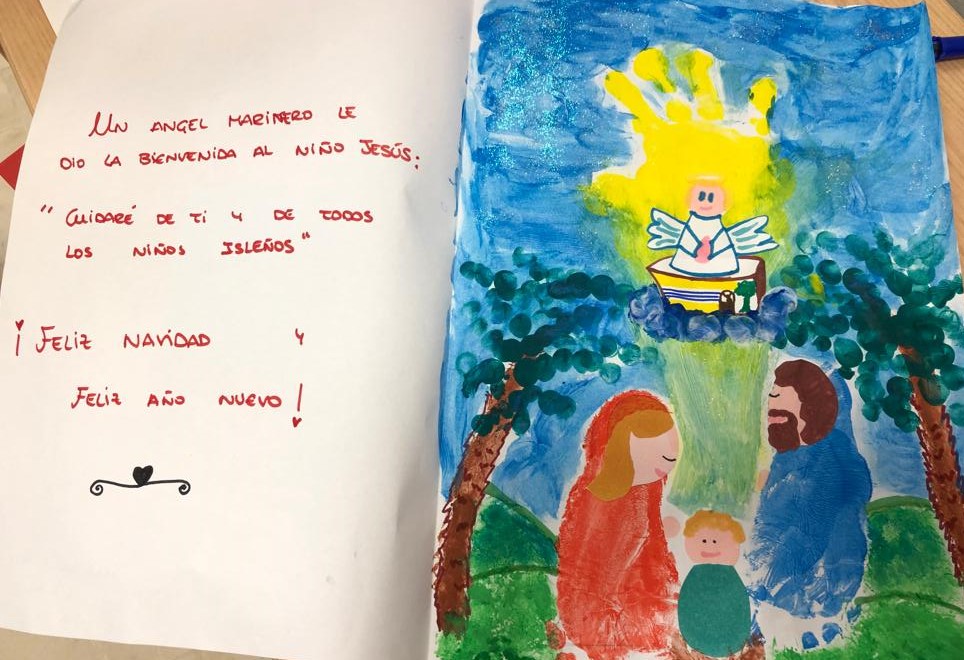 UN ANGEL MARINERO LE
DIO LA BIENVENIDA AL NIÑO JESÚS:
"CUIDARÉ DE TI Y DE TODOS
LOS NIÑOS ISLEÑOS"
¡FELIZ NAVIDAD Y
FELIZ AÑO NUEVO!